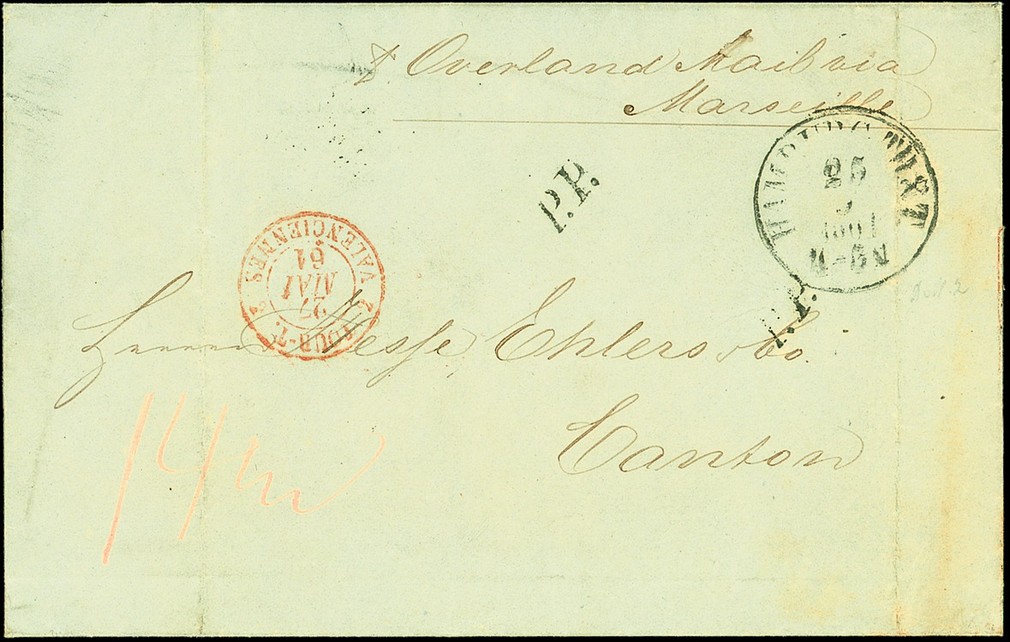 p Overland Mail via
Marseille
P.P.
HAMBURG TH.&T.
25
5
1861
4-5N
VALENCIENNES
27
MAI
61
P.P.
Herren Hesse Ehlers & Co.
Canton
14